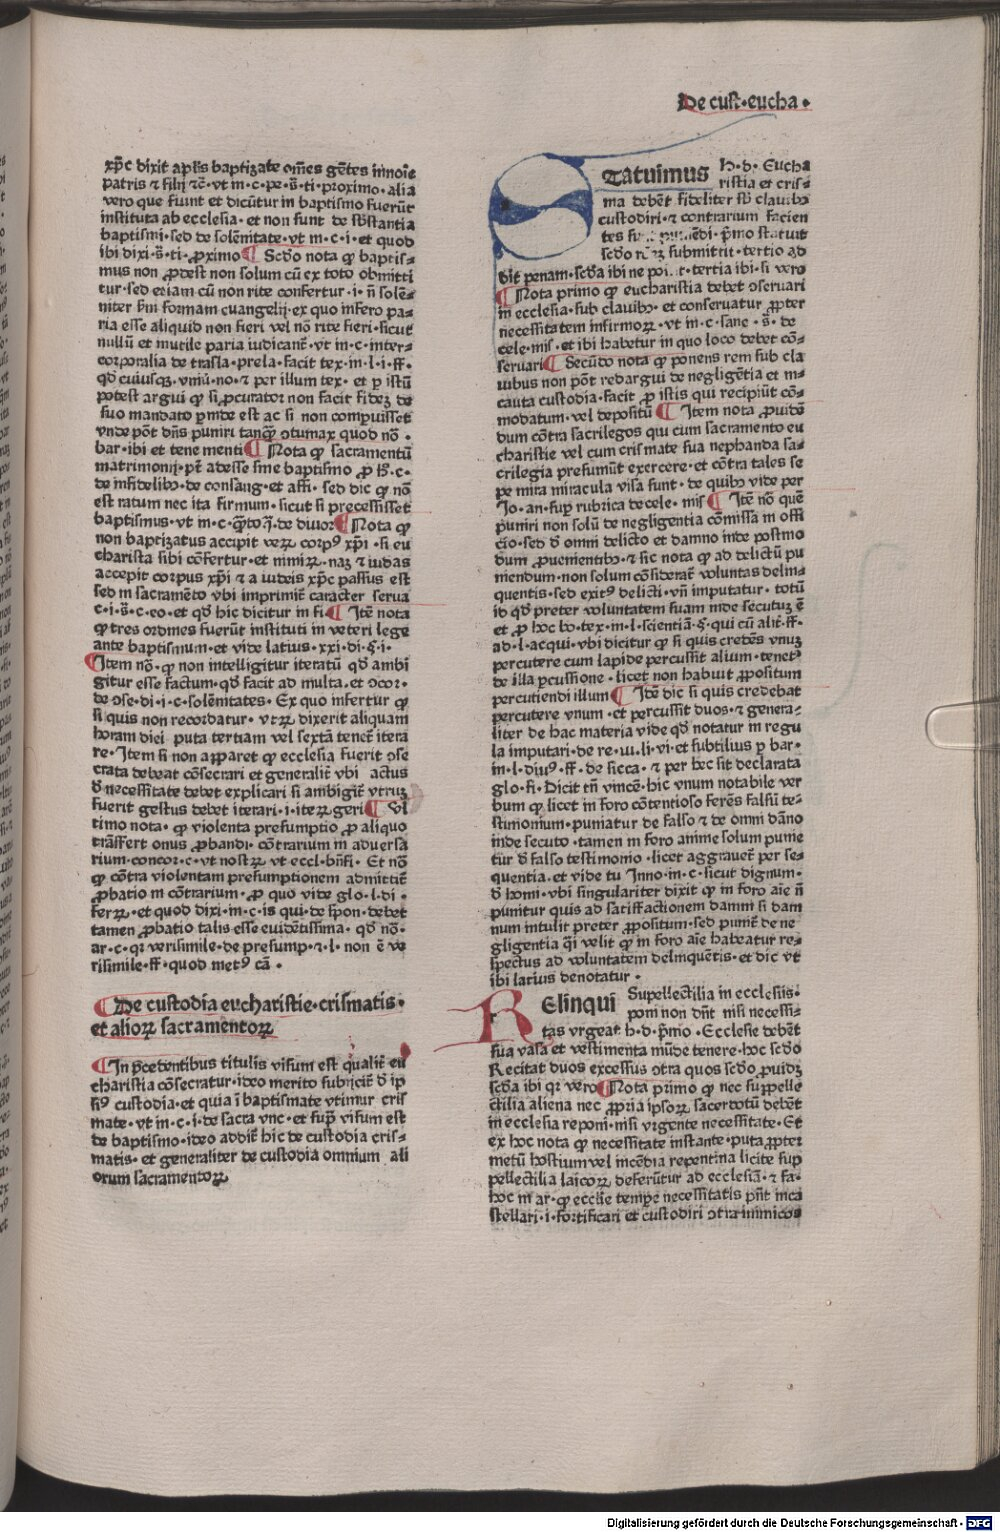 De cust·eucha·
xp̄c dixit apl̄is baptizate om̄es gētes in noīe
patris ⁊ filij ⁊c̄· vt in·c·pe·s̄·ti·proximo·alia
vero que fiunt et dicūtur in baptismo fuerūt
instituta ab ecclesia·et non sunt de sb̄stantia
baptismi·sed de solēnitate·vt in·c·i·et quod
ibi dixi·s̄·ti·ꝓximo ¶ Scd̄o nota ꝙ baptis⸗
mus non ꝓdest non solum cū ex toto obmitti
tur·sed etiam cū non rite confertur·i·n̄ solē⸗
niter sm̄ formam euangelij·ex quo infero pa⸗
ria esse aliquid non fieri vel nō rite fieri·sicut
nullū et inutile paria iudicant̄·vt in·c·inter⸗
corporalia de trasla·prela·facit tex·in·l·i·ff·
qd̄ cuiusqꝫ·vniū·no·⁊ per illum tex·et ꝑ istū
potest argui ꝙ si ꝓcurator non facit fideꝫ de
suo mandato ꝑinde est ac si non compuisset
vnde pōt dn̄s puniri tanqꝫ ꝯtumax quod nō·
bar·ibi et tene menti ¶ Nota ꝙ sacramentū
matrimonij·pt̄ adesse sine baptismo ꝓ hͦ·c·
de infidelibꝫ·de consang·et affi· sed dic ꝙ nō
est ratum nec ita firmum·sicut si precessisset
baptismus·vt in·c·qꝫto·i̊·de diuor ¶ Nota ꝙ
non baptizatus accipit verꝝ corpꝰ xp̄i·si eu
charistia sibi cōfertur·et nimirꝝ·naꝫ ⁊ iudas
accepit corpus xp̄i ⁊ a iudeis xp̄c passus est
sed in sacramēto vbi imprimit̄ caracter serua
c·i·s̄·c·eo·et qd̄ hic dicitur in fi· ¶ Itē nota
ꝙ tres ordines fuerūt instituti in veteri lege
ante baptismum·et vide latius·xxi·di·§·i·
¶ Item nō·ꝙ non intelligitur iteratū qd̄ ambi
gitur esse factum·qd̄ facit ad multa·et ꝯcor·
de ꝯse·di·i·c·solēnitates· Ex quo infertur ꝙ
si quis non recordatur·vtrꝝ dixerit aliquam
horam diei puta tertiam vel sextā tenet̄ itera
re·Item si non apparet ꝙ ecclesia fuerit ꝯse
crata debeat cōsecrari et generalit̄ vbi actus
d̄ necessitate debet explicari si ambigit̄ vtruꝫ
fuerit gestus debet iterari·i·iteꝝ geri ¶ Vl
timo nota·ꝙ violenta presumptio ꝓ aliquo
trāsfert onus ꝓbandi·cōtrarium in aduersa
rium·concor·c·vt nostꝝ vt eccl·bn̄fi· Et nō
ꝙ cōtra violentam presumptionem admittit̄
ꝓbatio in cōtrarium·ꝓ quo vide glo·l·di·
ferꝝ·et quod dixi·in·c·is qui·de spon·debet
tamen ꝓbatio talis esse euidētissima·qd̄ nō·
ar·c·qꝛ verisimile·de presump·⁊·l·non ē ve
risimile·ff·quod metꝰ cā·
¶ De custodia eucharistie·crismatis·
et alioꝝ sacramentoꝝ
¶ In p̄cedentibus titulis visum est qualit̄ eu
charistia cōsecratur·ideo merito subijcit̄ d̄ ip
siꝰ custodia·et quia i baptismate vtimur cris
mate·vt in·c·i·de sacra vnc·et sup̄ visum est
de baptismo·ideo addit̄ hic de custodia cris⸗
matis·et generaliter de custodia omnium ali
orum sacramentoꝝ
STatuimus h·d· Eucha
ristia et cris⸗
ma debēt fideliter sb̄ clauibꝫ
custodiri·⁊ contrarium facien
tes puniēdi·p̄mo statuit
scd̄o submittit·tertio ad
dit penam·scd̄a ibi ne tertia ibi·si vero
¶ Nota primo ꝙ eucharistia debet ꝯseruari
in ecclesia·sub clauibꝫ·et conseruatur ꝓpter
necessitatem infirmoꝝ·vt in·c·sane·s̄·de
cele·mis·et ibi habetur in quo loco debet cō⸗
seruari ¶ Secūdo nota ꝙ ponens rem sub cla
uibus non pōt redargui de negligētia et in⸗
cauta custodia·facit ꝓ istis qui recipiūt cō⸗
modatum·vel depositū ¶ Item nota ꝓuidē
dum cōtra sacrilegos qui cum sacramento eu
charistie vel cum crismate sua nephanda sa⸗
crilegia presumūt exercere·et cōtra tales se
pe mira miracula visa sunt·de quibꝫ vide per
Io·an·suꝑ rubrica de cele·mis ¶ Itē nō quē
puniri non solū de negligentia cōmissa in offi
cio·sed d̄ omni delicto et damno inde postmo
dum ꝓuenientibꝫ·⁊ sic nota ꝙ ad delictū pu
niendum·non solum cōsiderat̄ voluntas delin⸗
quentis·sed exitꝰ delicti·vn̄ imputatur·totū
id qd̄ preter voluntatem suam inde secutuꝫ ē
et ꝓ hoc bo·tex·in·l·scientiā·§·qui cū alit̄·ff·
ad·l·acqui·vbi dicitur ꝙ si quis credēs vnuꝫ
percutere cum lapide percussit alium·tenetꝰ
de illa ꝑcussione·licet non habuit ꝓpositum
percutiendi illum ¶ Idē dic si quis credebat
percutere vnum·et percussit duos·⁊ genera⸗
liter de hac materia vide qd̄ notatur in regu
la imputari·de re·iu·li·vi·et subtilius ꝑ bar·
in·l·diuꝰ·ff·de sicca·⁊ per hec sit declarata
glo·fi·Dicit tn̄ vincē·hic vnum notabile ver
bum ꝙ licet in foro cōtentioso ferēs falsū te⸗
stimonium·puniatur de falso ⁊ de omni dāno
inde secuto·tamen in foro anime solum punie
tur d̄ falso testimonio·licet aggrauet̄ per se⸗
quentia·et vide tu Inno·in·c·sicut dignum·
d̄ homi·vbi singulariter dixit ꝙ in foro aīe n̄
punitur quis ad satisfactionem damni si dam
num intulit preter ꝓpositum·sed punit̄ de ne
gligentia q̄i velit ꝙ in foro aīe habeatur re⸗
spectus ad voluntatem delinquētis·et dic vt
ibi latius denotatur·
RElinqui Supellectilia in ecclesiis·
poni non dn̄t nisi necessi⸗
tas vrgeat·h·d·p̄mo·Ecclesie debēt
sua vasa et vestimenta mūde tenere·hoc scd̄o
Recitat duos excessus ꝯtra quos scd̄o ꝓuidꝫ
scd̄a ibi qꝛ vero ¶ Nota primo ꝙ nec suppelle
ctilia aliena nec ꝓpria ipsoꝝ sacerdotū debēt
in ecclesia reponi·nisi vrgente necessitate·Et
ex hoc nota ꝙ necessitate instante·puta ꝓpter
metū hostium vel incēdia repentina licite sup
pellectilia laicoꝝ deferūtur ad ecclesiā·⁊ fa·
hoc in ar·ꝙ eccl̄ie tempe necessitatis pn̄t inca
stellari·i·fortificari et custodiri ꝯtra inimicos
Digitalisierung gefördert durch die Deutsche Forschungsgemeinschaft · DFG